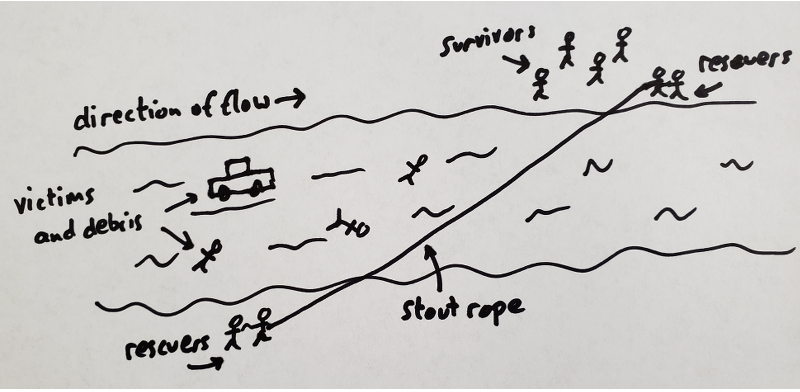 survivors
rescuers
direction of flow
victims
and debris
stout rope
rescuers